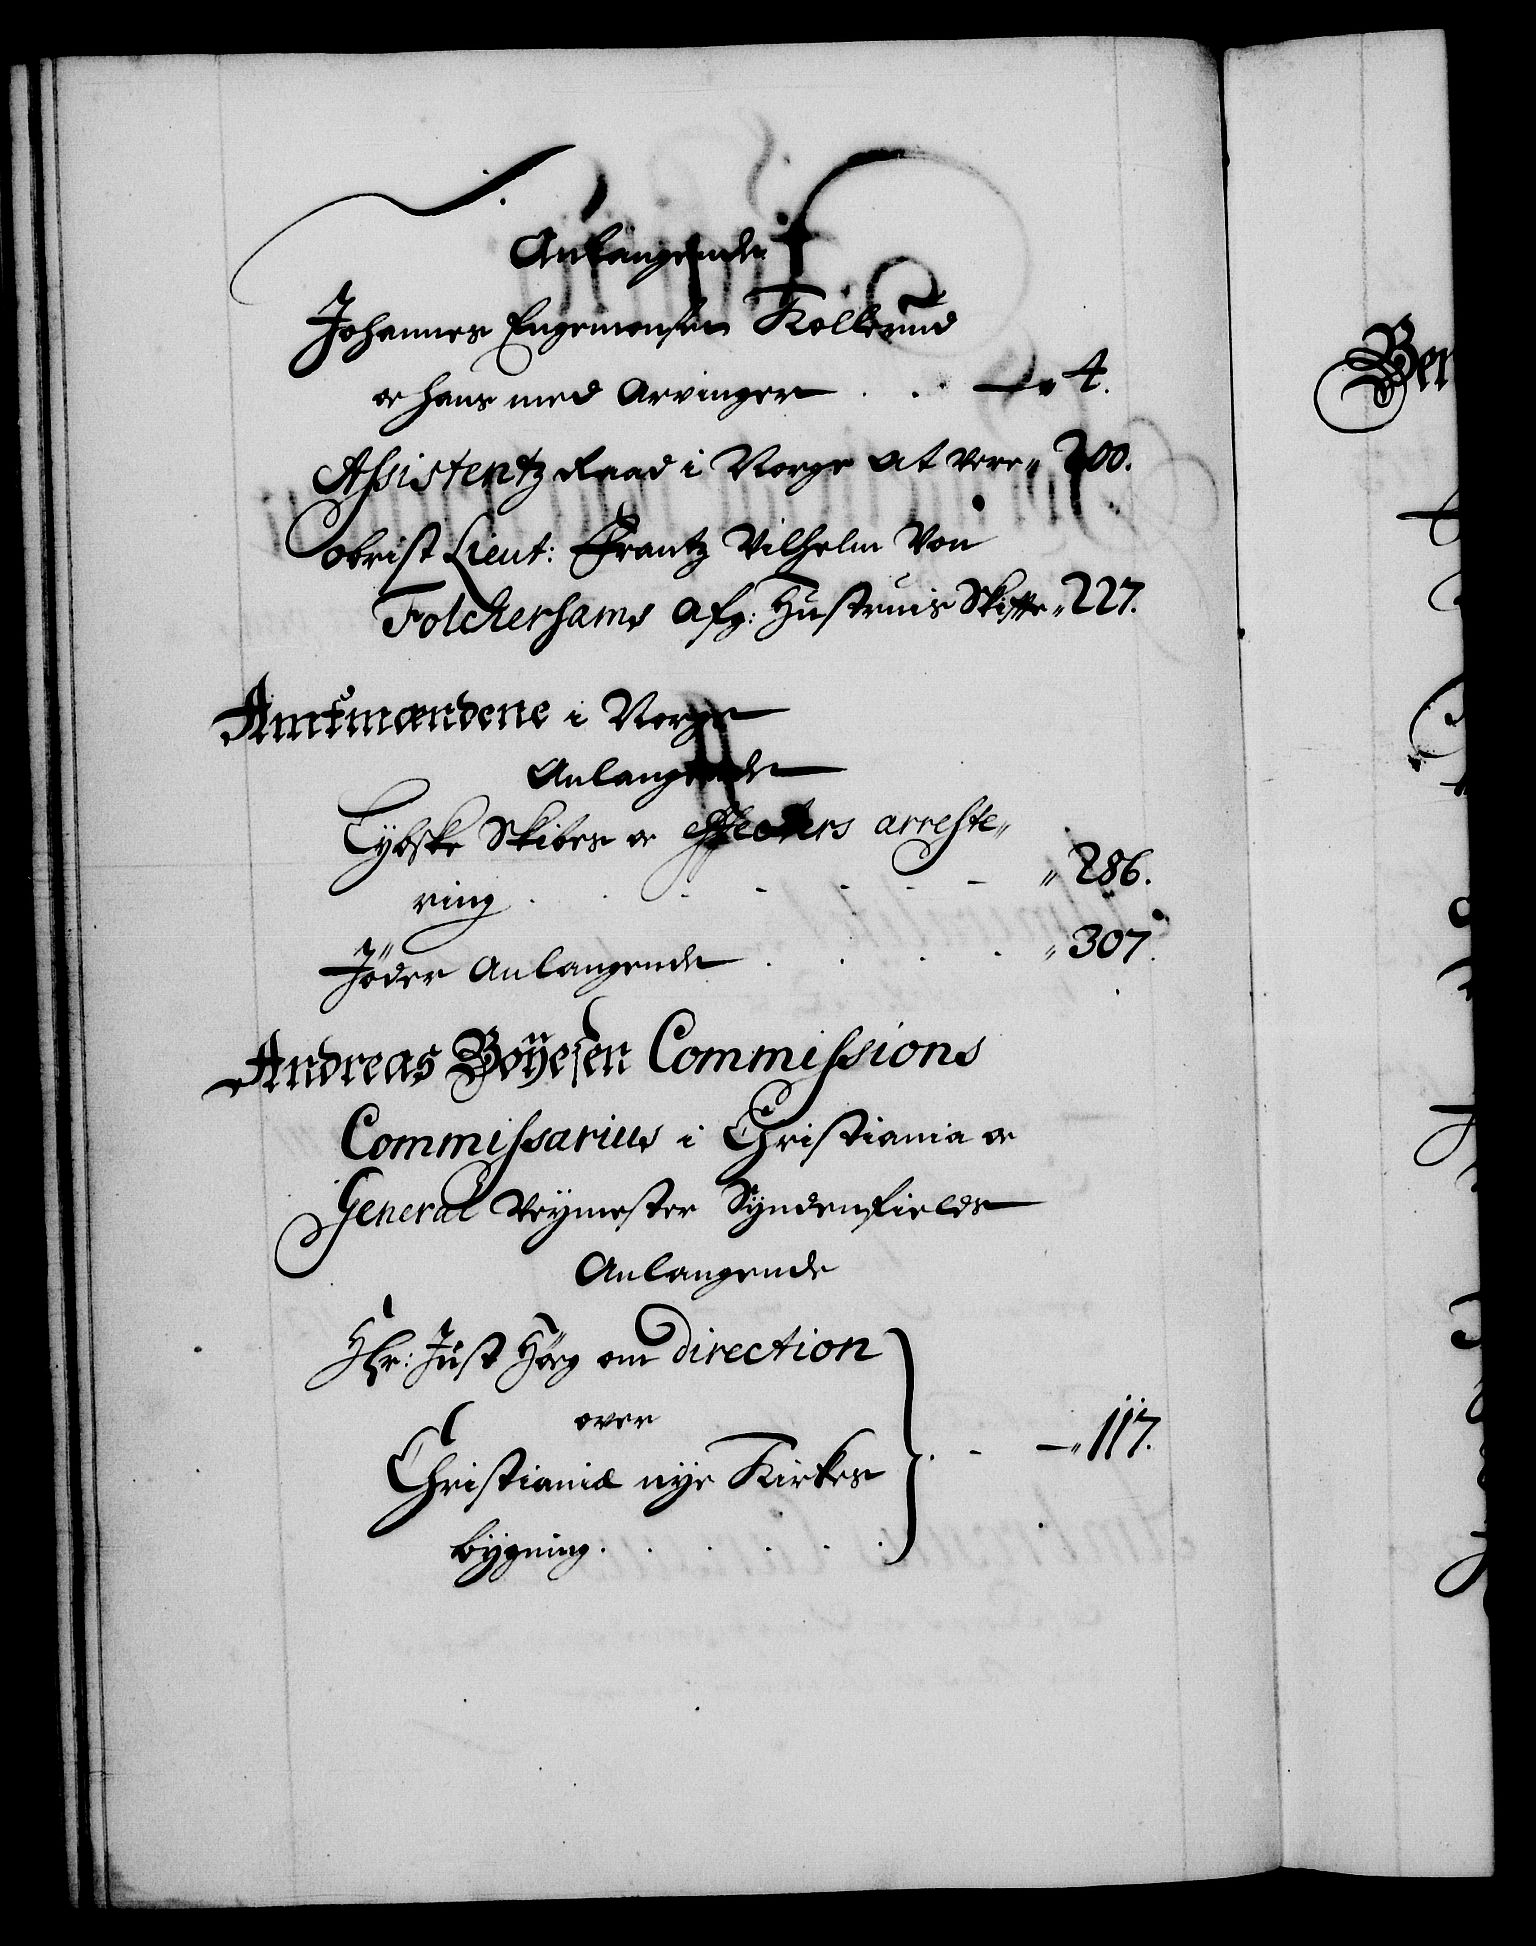 Anlangende
Johannes Engemonsen Kollerud
oc hans med Arvinger . . . — „ 4.
Assistentz Raad i Norge at vere „ 200.
Obrist Lieut: Frantz Vilhelm Von
Folckersams Afg: Hustruis Skifte „ 227.
Amtmændene i Norge
Anlangende
Lybske Skibes oc effecters arreste„
ring . . . . . . . „ 286.
Jøder Anlangende . . . . „ 307.
Andreas Boÿesen Commissions
Commissarius i Christiania oc
General Veymester Syndenfields
Anlangende
Hr: Just Høeg om Direction
over
Christianiæ nye Kirkes . — —„ 117.
bygning . . . . . .
Ber